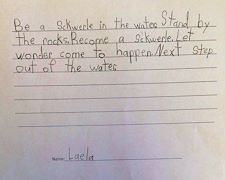 Be a Sckwerle in the water Stand by
the rocks. Become a Sckwerle. Let
wonder come to happen. Next Step
out of the water
Laela